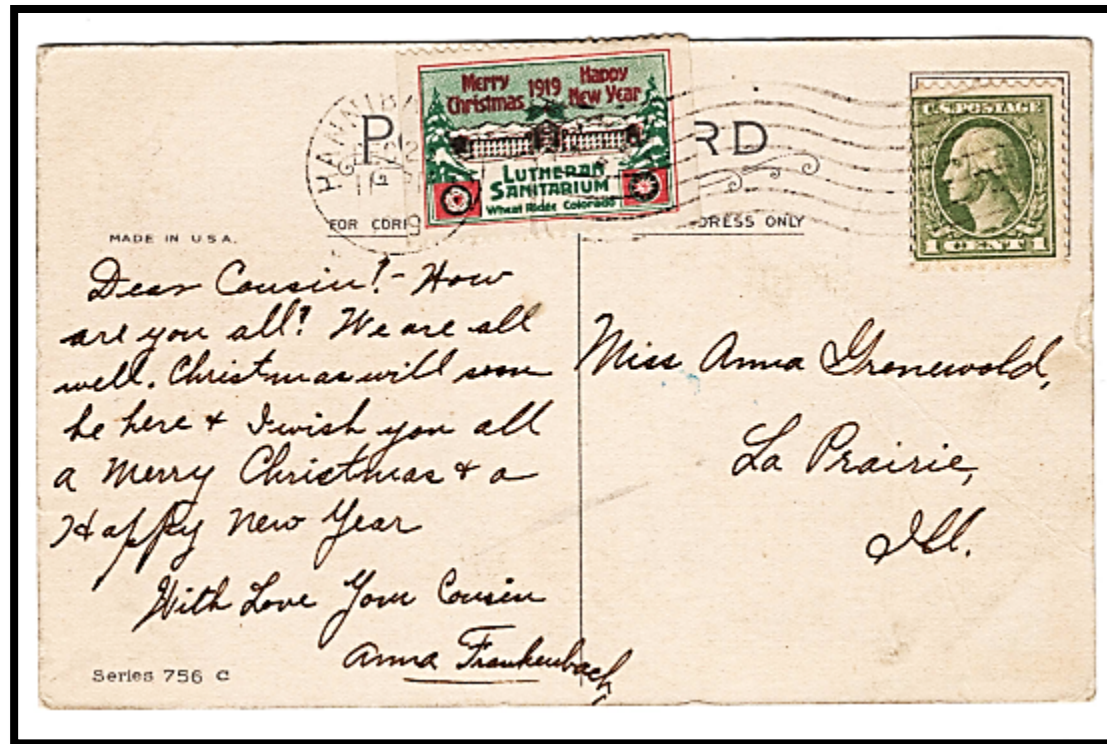 Merry Christmas 1919 Happy New Year
LUTHERAN
SANITARIUM
Wheat Ridge Colorado
HANNIBA
PO RD
U.S. POSTAGE
1 CENT 1
FOR CORR
DRESS ONLY
MADE IN U.S.A.
Dear Cousin!- How
are you all? We are all
well. Christmas will soon
be here + I wish you all
a Merry Christmas + a
Happy New Year
With Love Your Cousin
Anna Frankenbach
Miss Anna Grenewold,
La Prairie,
Ill.
Series 756 C